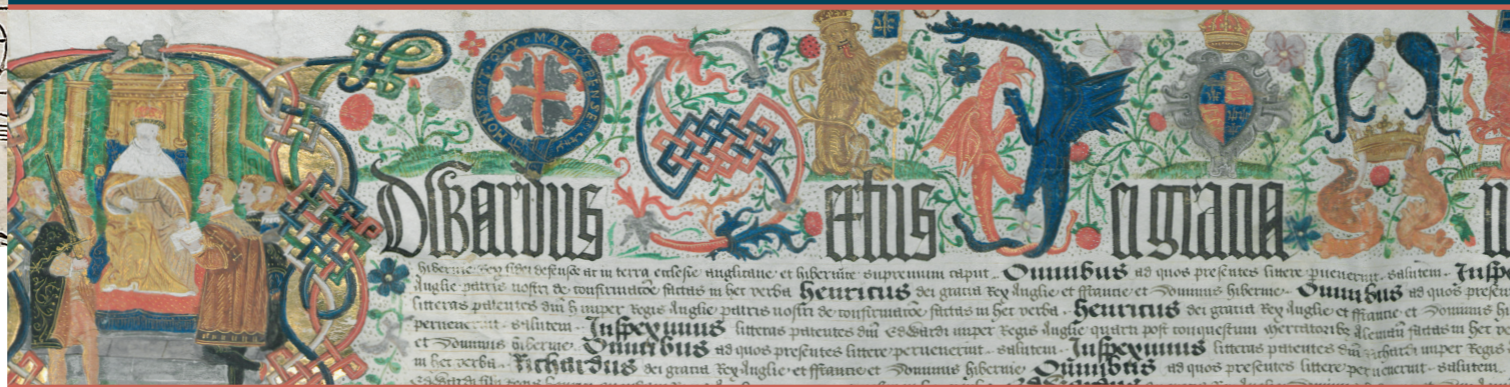 MAL Y PENSE
Edwardus Sextus Dei gracia
hibernie Rex fidei defensor ac in terra ecclesie anglicane et hibernice supremum caput Omnibus ad quos presentes littere pervenerint salutem Inspe
Anglie patris nostri de confirmacoe factas in hec verba Henricus dei gratia Rex Anglie et ffrancie et Dominus hibernie Omnibus ad quos presen
litteras patentes dni h nuper Regis Anglie patris nostri de confirmacoe factas in hec verba Henricus dei gratia Rex Anglie et ffrancie et Dominus h
pervenerint salutem Inspeximus litteras patentes dni Edwardi nuper Regis Anglie quarti post conquestum mercatoribz factas in hec
et Dominus hibernie Omnibus ad quos presentes littere pervenerint salutem Inspeximus litteras patentes dni nuper Regis
in hec verba Richardus dei gratia Rex Anglie et ffrancie et Dominus hibernie Omnibus ad quos presentes littere pervenerint salutem